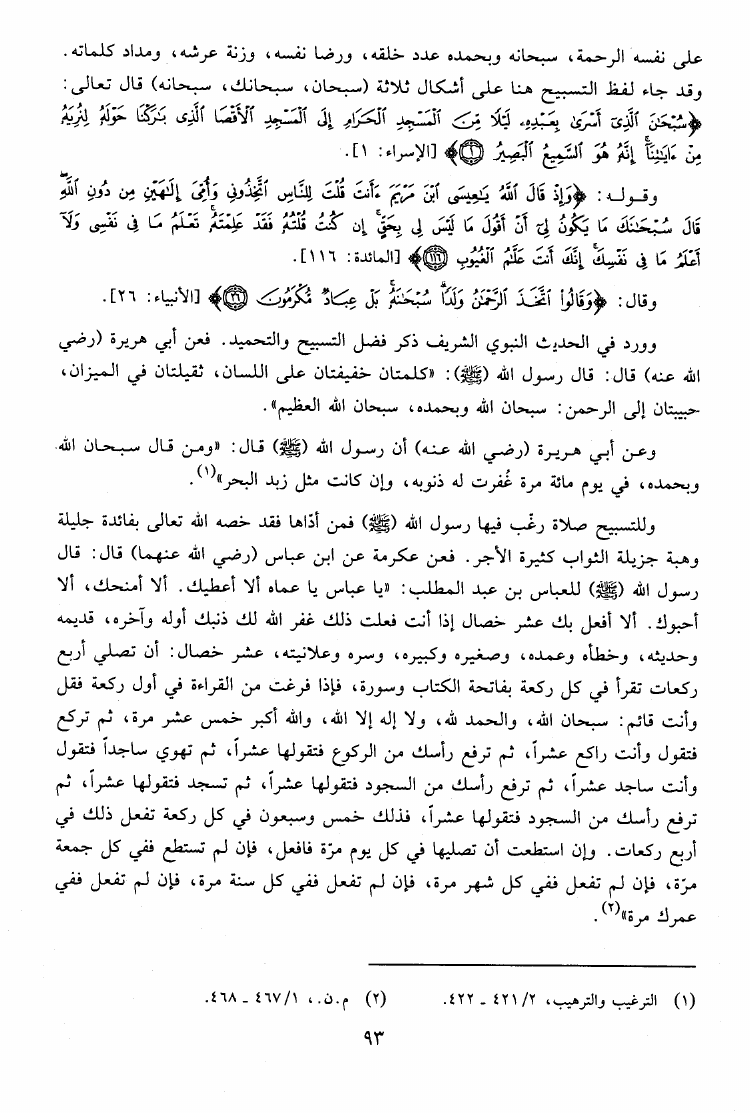 على نفسه الرحمة، سبحانه وبحمده عدد خلقه، ورضا نفسه، وزنة عرشه، ومداد كلماته.
وقد جاء لفظ التسبيح هنا على أشكال ثلاثة (سبحان، سبحانك، سبحانه) قال تعالى:
﴿سُبْحَٰنَ ٱلَّذِىٓ أَسْرَىٰ بِعَبْدِهِۦ لَيْلًا مِّنَ ٱلْمَسْجِدِ ٱلْحَرَامِ إِلَى ٱلْمَسْجِدِ ٱلْأَقْصَا ٱلَّذِى بَٰرَكْنَا حَوْلَهُۥ لِنُرِيَهُۥ
مِنْ ءَايَٰتِنَآ إِنَّهُۥ هُوَ ٱلسَّمِيعُ ٱلْبَصِيرُ ١﴾ [الإسراء: ١].
وقوله: ﴿وَإِذْ قَالَ ٱللَّهُ يَٰعِيسَى ٱبْنَ مَرْيَمَ ءَأَنتَ قُلْتَ لِلنَّاسِ ٱتَّخِذُونِى وَأُمِّىَ إِلَٰهَيْنِ مِن دُونِ ٱللَّهِ ۖ
قَالَ سُبْحَٰنَكَ مَا يَكُونُ لِىٓ أَنْ أَقُولَ مَا لَيْسَ لِى بِحَقٍّ ۚ إِن كُنتُ قُلْتُهُۥ فَقَدْ عَلِمْتَهُۥ ۚ تَعْلَمُ مَا فِى نَفْسِى وَلَآ
أَعْلَمُ مَا فِى نَفْسِكَ ۚ إِنَّكَ أَنتَ عَلَّٰمُ ٱلْغُيُوبِ ١١٦﴾ [المائدة: ١١٦].
وقال: ﴿وَقَالُوا۟ ٱتَّخَذَ ٱلرَّحْمَٰنُ وَلَدًا ۗ سُبْحَٰنَهُۥ ۚ بَلْ عِبَادٌ مُّكْرَمُونَ ٢٦﴾ [الأنبياء: ٢٦].
وورد في الحديث النبوي الشريف ذكر فضل التسبيح والتحميد. فعن أبي هريرة (رضي
الله عنه) قال: قال رسول الله (ﷺ): «كلمتان خفيفتان على اللسان، ثقيلتان في الميزان،
حبيبتان إلى الرحمن: سبحان الله وبحمده، سبحان الله العظيم».
وعن أبي هريرة (رضي الله عنه) أن رسول الله (ﷺ) قال: «ومن قال سبحان الله
وبحمده، في يوم مائة مرة غُفرت له ذنوبه، وإن كانت مثل زبد البحر»(١).
وللتسبيح صلاة رغّب فيها رسول الله (ﷺ) فمن أدّاها فقد خصه الله تعالى بفائدة جليلة
وهبة جزيلة الثواب كثيرة الأجر. فعن عكرمة عن ابن عباس (رضي الله عنهما) قال: قال
رسول الله (ﷺ) للعباس بن عبد المطلب: «يا عباس يا عماه ألا أعطيك. ألا أمنحك، ألا
أحبوك. ألا أفعل بك عشر خصال إذا أنت فعلت ذلك غفر الله لك ذنبك أوله وآخره، قديمه
وحديثه، وخطأه وعمده، وصغيره وكبيره، وسره وعلانيته، عشر خصال: أن تصلي أربع
ركعات تقرأ في كل ركعة بفاتحة الكتاب وسورة، فإذا فرغت من القراءة في أول ركعة فقل
وأنت قائم: سبحان الله، والحمد لله، ولا إله إلا الله، والله أكبر خمس عشر مرة، ثم تركع
فتقول وأنت راكع عشراً، ثم ترفع رأسك من الركوع فتقولها عشراً، ثم تهوي ساجداً فتقول
وأنت ساجد عشراً، ثم ترفع رأسك من السجود فتقولها عشراً، ثم تسجد فتقولها عشراً، ثم
ترفع رأسك من السجود فتقولها عشراً، فذلك خمس وسبعون في كل ركعة تفعل ذلك في
أربع ركعات. وإن استطعت أن تصليها في كل يوم مرّة فافعل، فإن لم تستطع ففي كل جمعة
مرّة، فإن لم تفعل ففي كل شهر مرة، فإن لم تفعل ففي كل سنة مرة، فإن لم تفعل ففي
عمرك مرة»(٢).
(١) الترغيب والترهيب، ٤٢١/٢ ـ ٤٢٢. (٢) م.ن.، ٤٦٧/١ ـ ٤٦٨.
٩٣